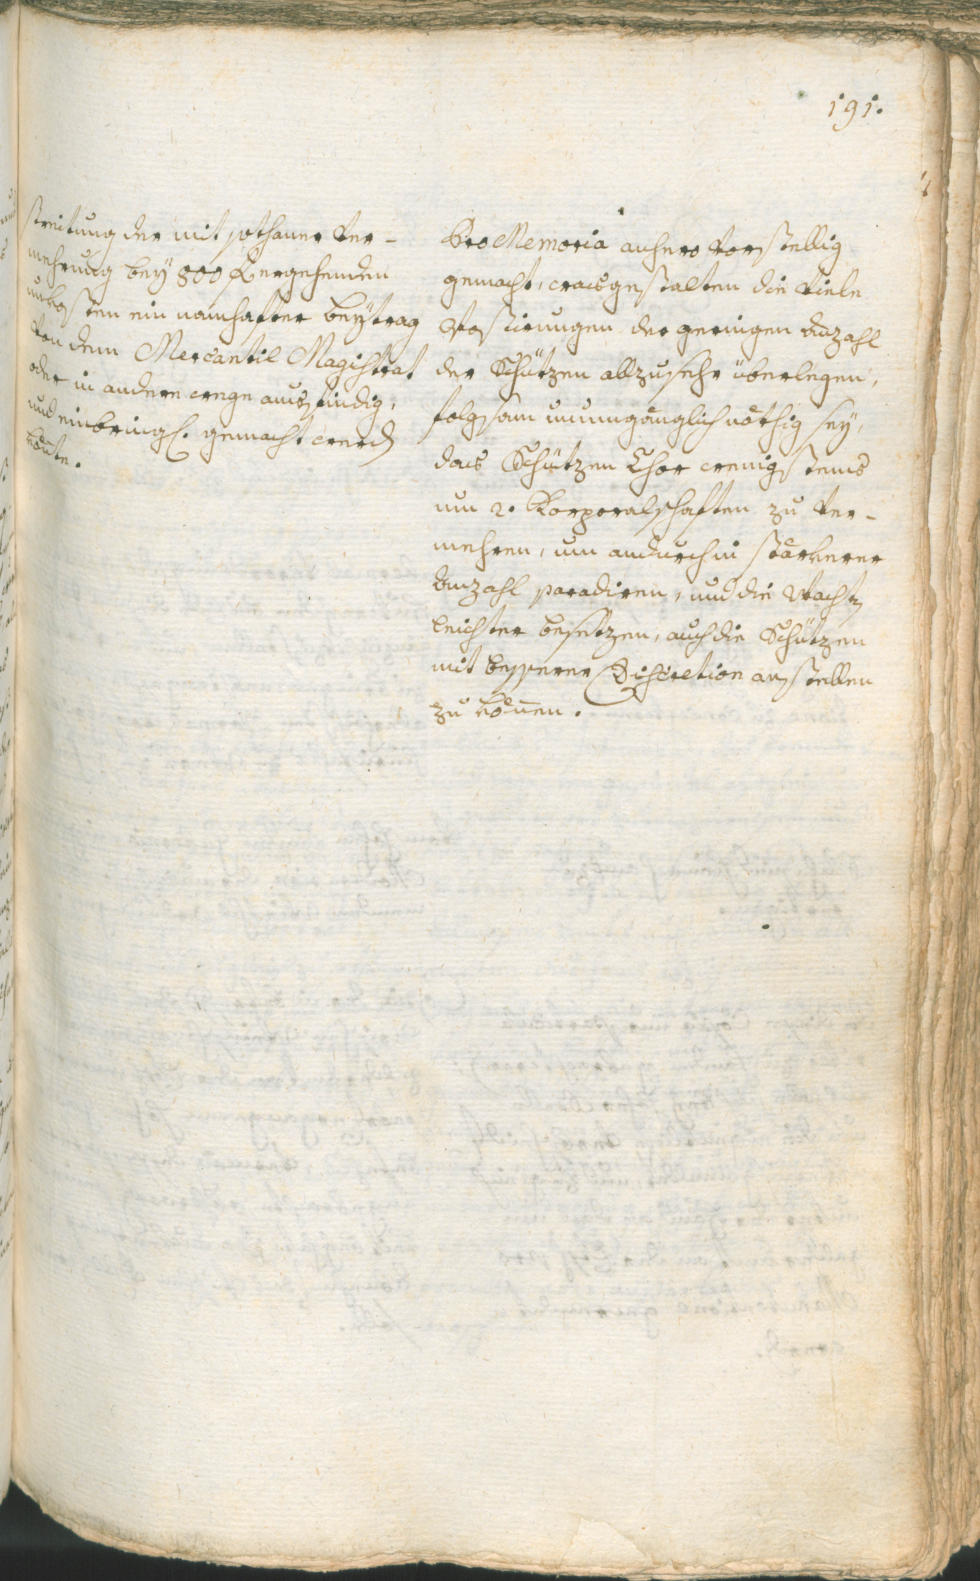 191.
streitung der mit sothaner Ver-
mehrung bey 800 f ergehenden
unkosten ein namhafter beytrag
von dem Mercantil Magistrat
oder in andere weege ausfindig,
und einbringl. gemacht werden
könte.
Pro Memoria anhero vorstellig
gemacht, wasgestalten die viele
Postirungen der geringen Anzahl
der Schützen allzusehr überlegen,
folgsam unumgänglich nöthig sey,
das Schützen Chor wenigstens
um 2. Korporalschaften zu ver-
mehren, um andurch in stärkerer
Anzahl paradiren, und die Wachten
leichter besetzen, auch die Schützen
mit besserer Discretion anstellen
zu können.